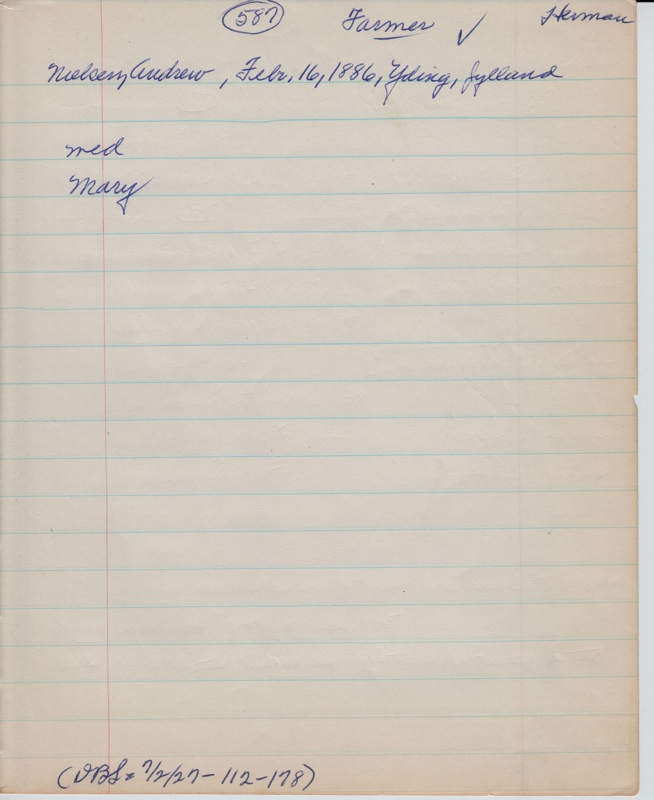 587 Farmer ✓ Herman
Nielsen, Andrew, Febr. 16, 1886, Yding, Jylland
med
Mary
(DBS 7/2/27-112-178)